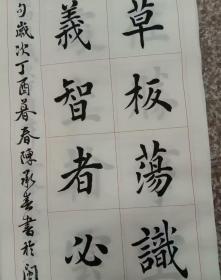 草板蕩識
義智者必
句歲次丁酉暮春陳承春書於閩